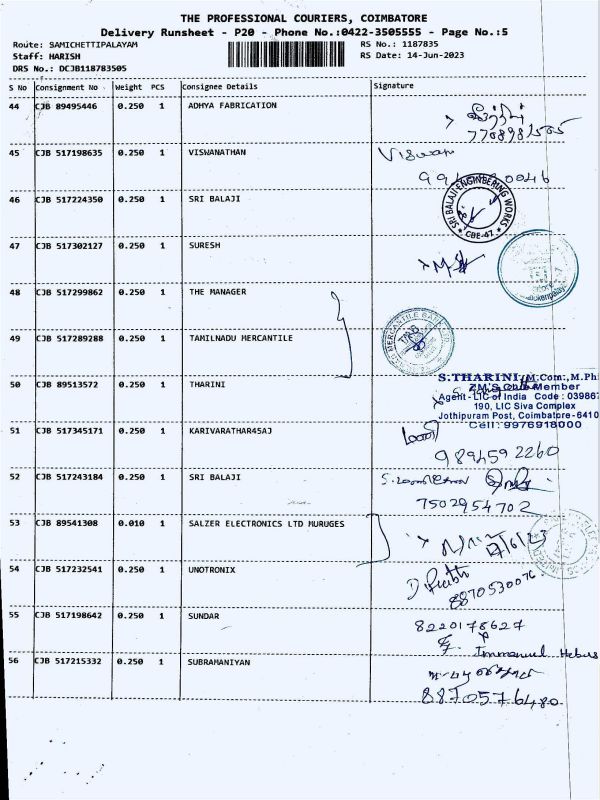 THE PROFESSIONAL COURIERS, COIMBATORE
Delivery Runsheet - P20 - Phone No.:0422-3505555 - Page No.:5
Route: SAMICHETTIPALAYAM RS No.: 1187835
Staff: HARISH RS Date: 14-Jun-2023
DRS No.: DCJB118783505
S No Consignment No Weight PCS Consignee Details Signature
44 CJB 89495446 0.250 1 ADHYA FABRICATION
45 CJB 517198635 0.250 1 VISWANATHAN Viswan
46 CJB 517224350 0.250 1 SRI BALAJI SRI BALAJI ENGINEERING WORKS * CBE-47 *
47 CJB 517302127 0.250 1 SURESH
48 CJB 517299862 0.250 1 THE MANAGER
49 CJB 517289288 0.250 1 TAMILNADU MERCANTILE MERCANTILE BANK
TMB
50 CJB 89513572 0.250 1 THARINI S.THARINI, M.Com., M.Ph
ZM'S Club Member
Agent - LIC of India Code : 03986
190, LIC Siva Complex
Jothipuram Post, Coimbatore-6410
Cell : 9976918000
51 CJB 517345171 0.250 1 KARIVARATHAR45AJ
9894592260
52 CJB 517243184 0.250 1 SRI BALAJI
7502954702
53 CJB 89541308 0.010 1 SALZER ELECTRONICS LTD MURUGES
54 CJB 517232541 0.250 1 UNOTRONIX
8870530076
55 CJB 517198642 0.250 1 SUNDAR 8220178627
Immanuel
56 CJB 517215332 0.250 1 SUBRAMANIYAN
8870576480